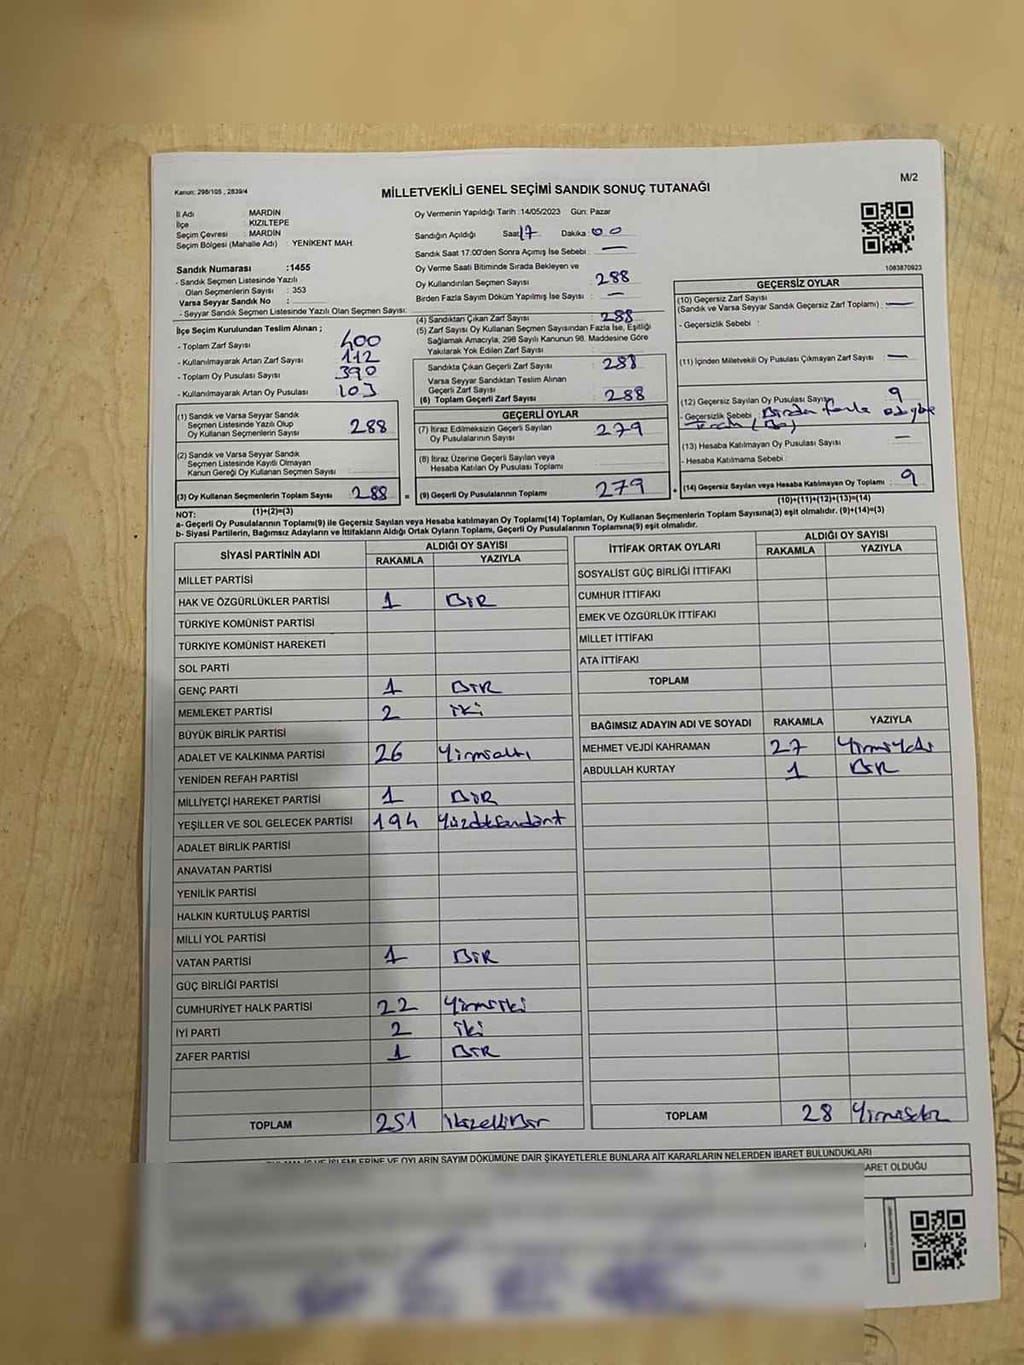 Kanun: 298/105 , 2839/4
MİLLETVEKİLİ GENEL SEÇİMİ SANDIK SONUÇ TUTANAĞI
M/2
İl Adı : MARDİN
İlçe : KIZILTEPE
Seçim Çevresi : MARDİN
Seçim Bölgesi (Mahalle Adı) : YENİKENT MAH.
Sandık Numarası :1455
- Sandık Seçmen Listesinde Yazılı
Olan Seçmenlerin Sayısı : 353
Varsa Seyyar Sandık No :
- Seyyar Sandık Seçmen Listesinde Yazılı Olan Seçmen Sayısı:
Oy Vermenin Yapıldığı Tarih :14/05/2023 Gün: Pazar
Sandığın Açıldığı Saat 17 Dakika 00
Sandık Saat 17:00'den Sonra Açımış İse Sebebi : —
Oy Verme Saati Bitiminde Sırada Bekleyen ve
Oy Kullandırılan Seçmen Sayısı : 288
Birden Fazla Sayım Döküm Yapılmış İse Sayısı : —
1083870923
İlçe Seçim Kurulundan Teslim Alınan ;
- Toplam Zarf Sayısı : 400
- Kullanılmayarak Artan Zarf Sayısı : 112
- Toplam Oy Pusulası Sayısı : 390
- Kullanılmayarak Artan Oy Pusulası : 103
(1) Sandık ve Varsa Seyyar Sandık
Seçmen Listesinde Yazılı Olup
Oy Kullanan Seçmenlerin Sayısı : 288
(2) Sandık ve Varsa Seyyar Sandık
Seçmen Listesinde Kayıtlı Olmayan
Kanun Gereği Oy Kullanan Seçmen Sayısı :
(3) Oy Kullanan Seçmenlerin Toplam Sayısı : 288 =
(4) Sandıktan Çıkan Zarf Sayısı : 288
(5) Zarf Sayısı Oy Kullanan Seçmen Sayısından Fazla İse, Eşitliği
Sağlamak Amacıyla, 298 Sayılı Kanunun 98. Maddesine Göre
Yakılarak Yok Edilen Zarf Sayısı :
Sandıkta Çıkan Geçerli Zarf Sayısı : 288
Varsa Seyyar Sandıktan Teslim Alınan
Geçerli Zarf Sayısı :
(6) Toplam Geçerli Zarf Sayısı : 288
GEÇERLİ OYLAR
(7) İtiraz Edilmeksizin Geçerli Sayılan
Oy Pusulalarının Sayısı : 279
(8) İtiraz Üzerine Geçerli Sayılan veya
Hesaba Katılan Oy Pusulası Toplamı :
(9) Geçerli Oy Pusulalarının Toplamı : 279 +
GEÇERSİZ OYLAR
(10) Geçersiz Zarf Sayısı
(Sandık ve Varsa Seyyar Sandık Geçersiz Zarf Toplamı) : —
- Geçersizlik Sebebi :
(11) İçinden Milletvekili Oy Pusulası Çıkmayan Zarf Sayısı : —
(12) Geçersiz Sayılan Oy Pusulası Sayısı : 9
- Geçersizlik Sebebi :
(13) Hesaba Katılmayan Oy Pusulası Sayısı : —
- Hesaba Katılmama Sebebi :
(14) Geçersiz Sayılan veya Hesaba Katılmayan Oy Toplamı : 9
NOT: (1)+(2)=(3) (10)+(11)+(12)+(13)=(14)
a- Geçerli Oy Pusulalarının Toplamı(9) ile Geçersiz Sayılan veya Hesaba katılmayan Oy Toplamı(14) Toplamları, Oy Kullanan Seçmenlerin Toplam Sayısına(3) eşit olmalıdır. (9)+(14)=(3)
b- Siyasi Partilerin, Bağımsız Adayların ve İttifakların Aldığı Ortak Oyların Toplamı, Geçerli Oy Pusulalarının Toplamına(9) eşit olmalıdır.
SİYASİ PARTİNİN ADI ALDIĞI OY SAYISI
RAKAMLA YAZIYLA
MİLLET PARTİSİ
HAK VE ÖZGÜRLÜKLER PARTİSİ 1 BİR
TÜRKİYE KOMÜNİST PARTİSİ
TÜRKİYE KOMÜNİST HAREKETİ
SOL PARTİ
GENÇ PARTİ 1 BİR
MEMLEKET PARTİSİ 2 iki
BÜYÜK BİRLİK PARTİSİ
ADALET VE KALKINMA PARTİSİ 26 Yirmialtı
YENİDEN REFAH PARTİSİ
MİLLİYETÇİ HAREKET PARTİSİ 1 BİR
YEŞİLLER VE SOL GELECEK PARTİSİ 194 Yüzdoksandört
ADALET BİRLİK PARTİSİ
ANAVATAN PARTİSİ
YENİLİK PARTİSİ
HALKIN KURTULUŞ PARTİSİ
MİLLİ YOL PARTİSİ
VATAN PARTİSİ 1 BİR
GÜÇ BİRLİĞİ PARTİSİ
CUMHURİYET HALK PARTİSİ 22 Yirmiiki
İYİ PARTİ 2 iki
ZAFER PARTİSİ 1 BİR
TOPLAM 251 İkiyüzellibir
İTTİFAK ORTAK OYLARI ALDIĞI OY SAYISI
RAKAMLA YAZIYLA
SOSYALİST GÜÇ BİRLİĞİ İTTİFAKI
CUMHUR İTTİFAKI
EMEK VE ÖZGÜRLÜK İTTİFAKI
MİLLET İTTİFAKI
ATA İTTİFAKI
TOPLAM
BAĞIMSIZ ADAYIN ADI VE SOYADI RAKAMLA YAZIYLA
MEHMET VEJDİ KAHRAMAN 27 Yirmiyedi
ABDULLAH KURTAY 1 BİR
TOPLAM 28 Yirmisekiz
İŞLEMLERİNE VE OYLARIN SAYIM DÖKÜMÜNE DAİR ŞİKAYETLERLE BUNLARA AİT KARARLARIN NELERDEN İBARET BULUNDUKLARI
ARET OLDUĞU